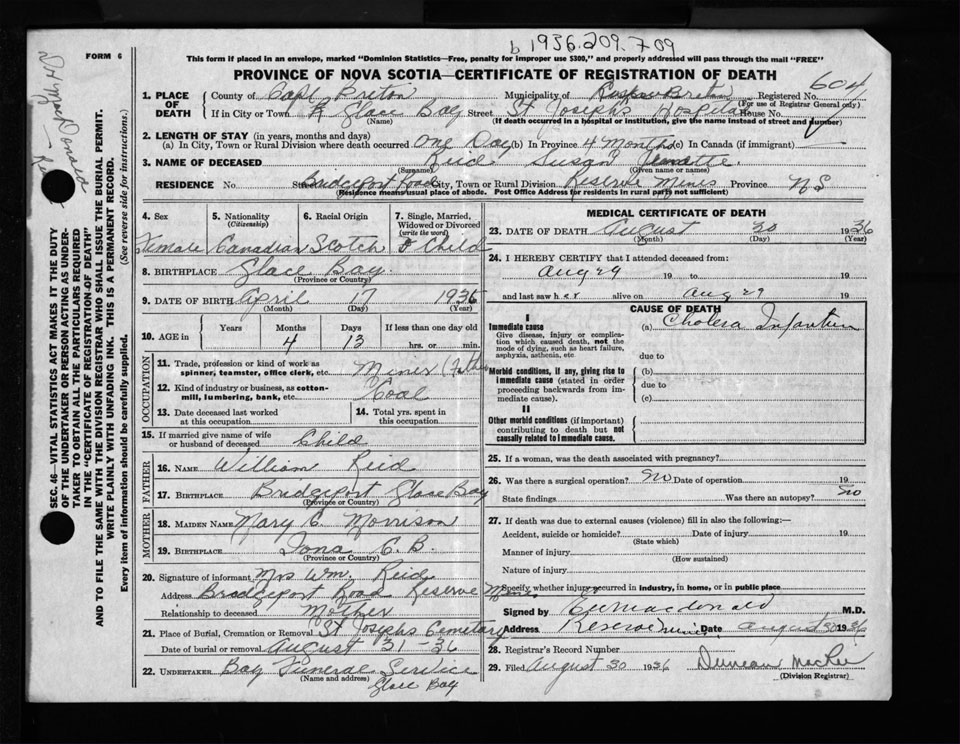 b 1936.209.709
FORM 6
This form if placed in an envelope, marked "Dominion Statistics—Free, penalty for improper use $300," and properly addressed will pass through the mail "FREE"
PROVINCE OF NOVA SCOTIA—CERTIFICATE OF REGISTRATION OF DEATH
604
1. PLACE OF DEATH
County of Cape Briton (Name) Municipality of Registered No. (For use of Registrar General only)
If in City or Town Glace Bay Street St Josephs Hospital House No.
(If death occurred in a hospital or institution, give the name instead of street and number)
2. LENGTH OF STAY (in years, months and days)
(a) In City, Town or Rural Division where death occurred One Day (b) In Province 4 Months (c) In Canada (if immigrant)
3. NAME OF DECEASED Reid (Surname) Susan (Given name or names)
RESIDENCE No. Street Bridgeport Road City, Town or Rural Division Reserve Mines Province NS
(Residence means usual place of abode. Post Office Address for residents in rural parts not sufficient)
4. Sex Female
5. Nationality (Citizenship) Canadian
6. Racial Origin Scotch
7. Single, Married, Widowed or Divorced (write the word) Child
8. BIRTHPLACE Glace Bay (Province or Country)
9. DATE OF BIRTH April (Month) 17 (Day) 1936 (Year)
10. AGE in Years Months 4 Days 13 If less than one day old hrs. or min.
OCCUPATION
11. Trade, profession or kind of work as spinner, teamster, office clerk, etc. Miner (Father
12. Kind of industry or business, as cotton-mill, lumbering, bank, etc. Coal
13. Date deceased last worked at this occupation
14. Total yrs. spent in this occupation
15. If married give name of wife or husband of deceased Child
FATHER
16. NAME William Reid
17. BIRTHPLACE Bridgeport Glace Bay (Province or Country)
MOTHER
18. MAIDEN NAME Mary C. Morrison
19. BIRTHPLACE Iona C.B. (Province or Country)
20. Signature of informant Mrs Wm. Reid
Address Bridgeport Road Reserve Mines
Relationship to deceased Mother
21. Place of Burial, Cremation or Removal St Josephs Cemetary
Date of burial or removal August 31-36
22. UNDERTAKER Bay Funeral Service
(Name and address) Glace Bay
MEDICAL CERTIFICATE OF DEATH
23. DATE OF DEATH August (Month) 30 (Day) 1936 (Year)
24. I HEREBY CERTIFY that I attended deceased from:
Aug 29 19 to 19
and last saw her alive on Aug 29 19
CAUSE OF DEATH
I
Immediate cause
Give disease, injury or complication which caused death, not the mode of dying, such as heart failure, asphyxia, asthenia, etc
(a) Cholera Infantum
due to
Morbid conditions, if any, giving rise to immediate cause (stated in order proceeding backwards from immediate cause).
(b)
due to
(c)
II
Other morbid conditions (if important) contributing to death but not causally related to immediate cause.
25. If a woman, was the death associated with pregnancy?
26. Was there a surgical operation? No Date of operation 19
State findings Was there an autopsy? No
27. If death was due to external causes (violence) fill in also the following:—
Accident, suicide or homicide? (State which) Date of injury 19
Manner of injury (How sustained)
Nature of injury
Specify whether injury occurred in industry, in home, or in public place
Signed by Macdonald M.D.
Address Reserve Mines Date August 30 1936
28. Registrar's Record Number
29. Filed August 30 1936 Duncan
(Division Registrar)
SEC. 46—VITAL STATISTICS ACT MAKES IT THE DUTY
OF THE UNDERTAKER OR PERSON ACTING AS UNDER-
TAKER TO OBTAIN ALL THE PARTICULARS REQUIRED
IN THE "CERTIFICATE OF REGISTRATION OF DEATH"
AND TO FILE THE SAME WITH THE DIVISION REGISTRAR WHO SHALL ISSUE THE BURIAL PERMIT.
WRITE PLAINLY WITH UNFADING INK. THIS IS A PERMANENT RECORD.
Every item of information should be carefully supplied. (See reverse side for instructions.)